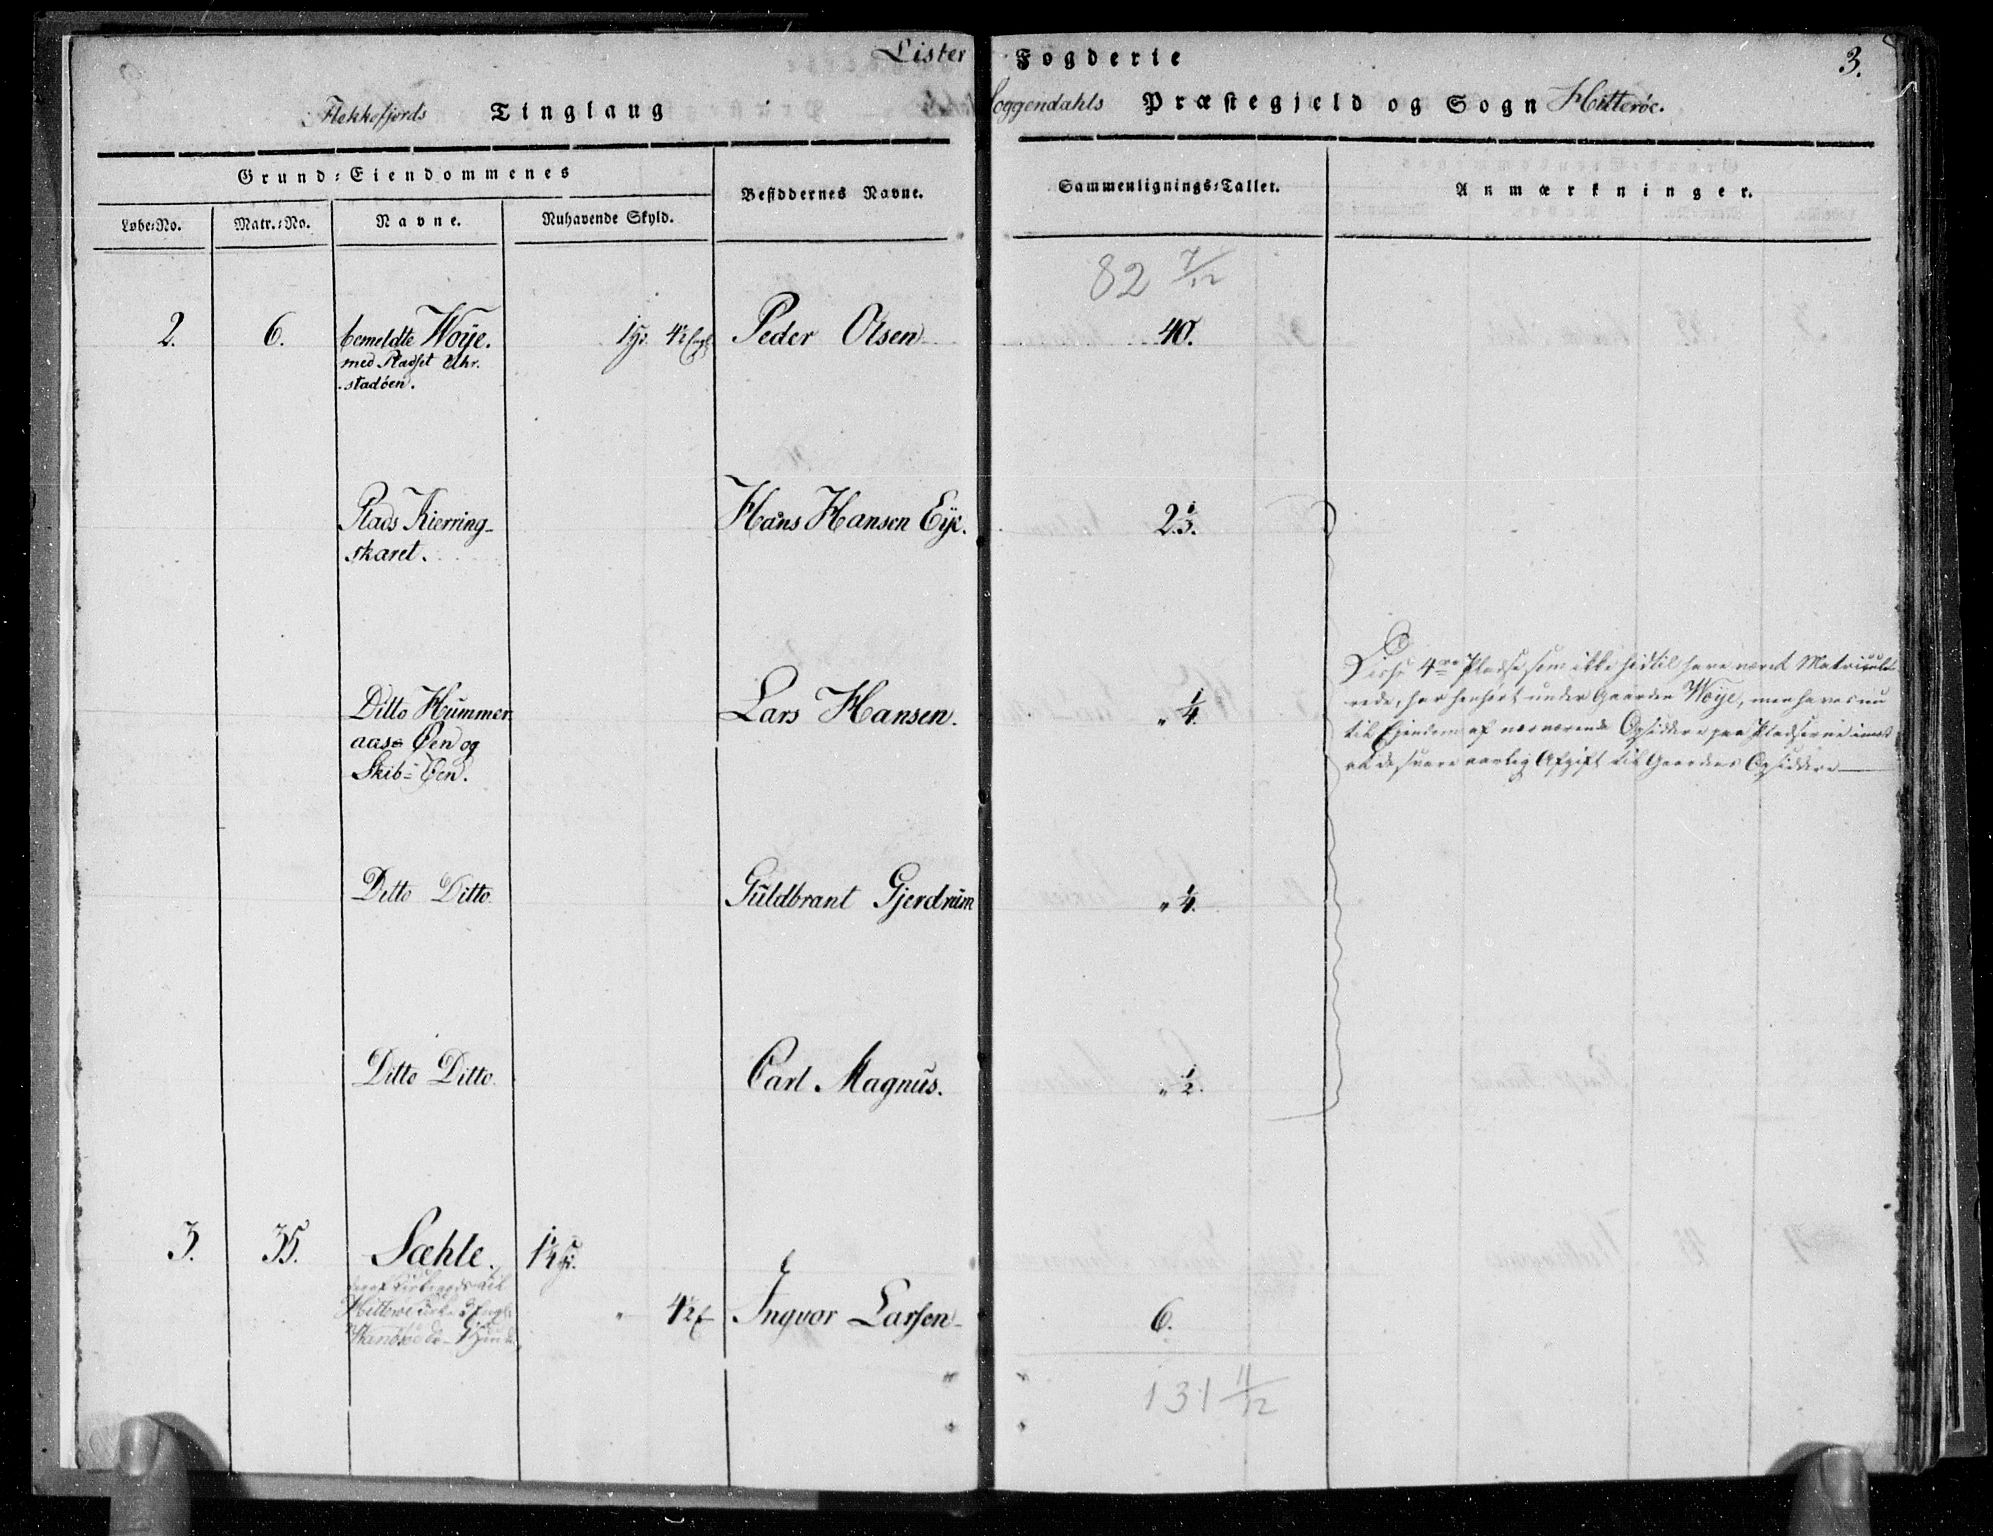 Lister Fogderie 3.
Flekkefjords Tinglaug Soggendahls Præstegjeld og Sogn Hitterøe.
Grund-Eiendommenes
Besiddernes Navne.
Sammenlignings-Tallet.
Anmærkninger.
Løbe-No. Matr.-No. Navne. Nuhavende Skyld.
82 7/12
2. 6. bemeldte Woÿe. 4½ Peder Olsen 40.
med Pladset
stadöen.
Plads Kierring- Hans Hansen Eÿe. 2⅓.
skaret.
Ditto Hummer Lars Hansen. " ¼.
aas= Øen og
Skib= Øen.
Disse 4re Pladse som ikke hidtil have været Matricule
rede, har henhørt under Gaarden Woÿe, men haves nu
til Ejendom af nærværende Opsiddere paa Pladserne imod
at de svare aarlig Afgift til Gaardens Opsiddere
Ditto Ditto. Guldbrant Gjerdrum " ¼.
Ditto Ditto. Carl Magnus. " ½.
3. 35. Sæhle.
Hitterøe
" 4½ Ingvor Larsen 6.
131 11/12